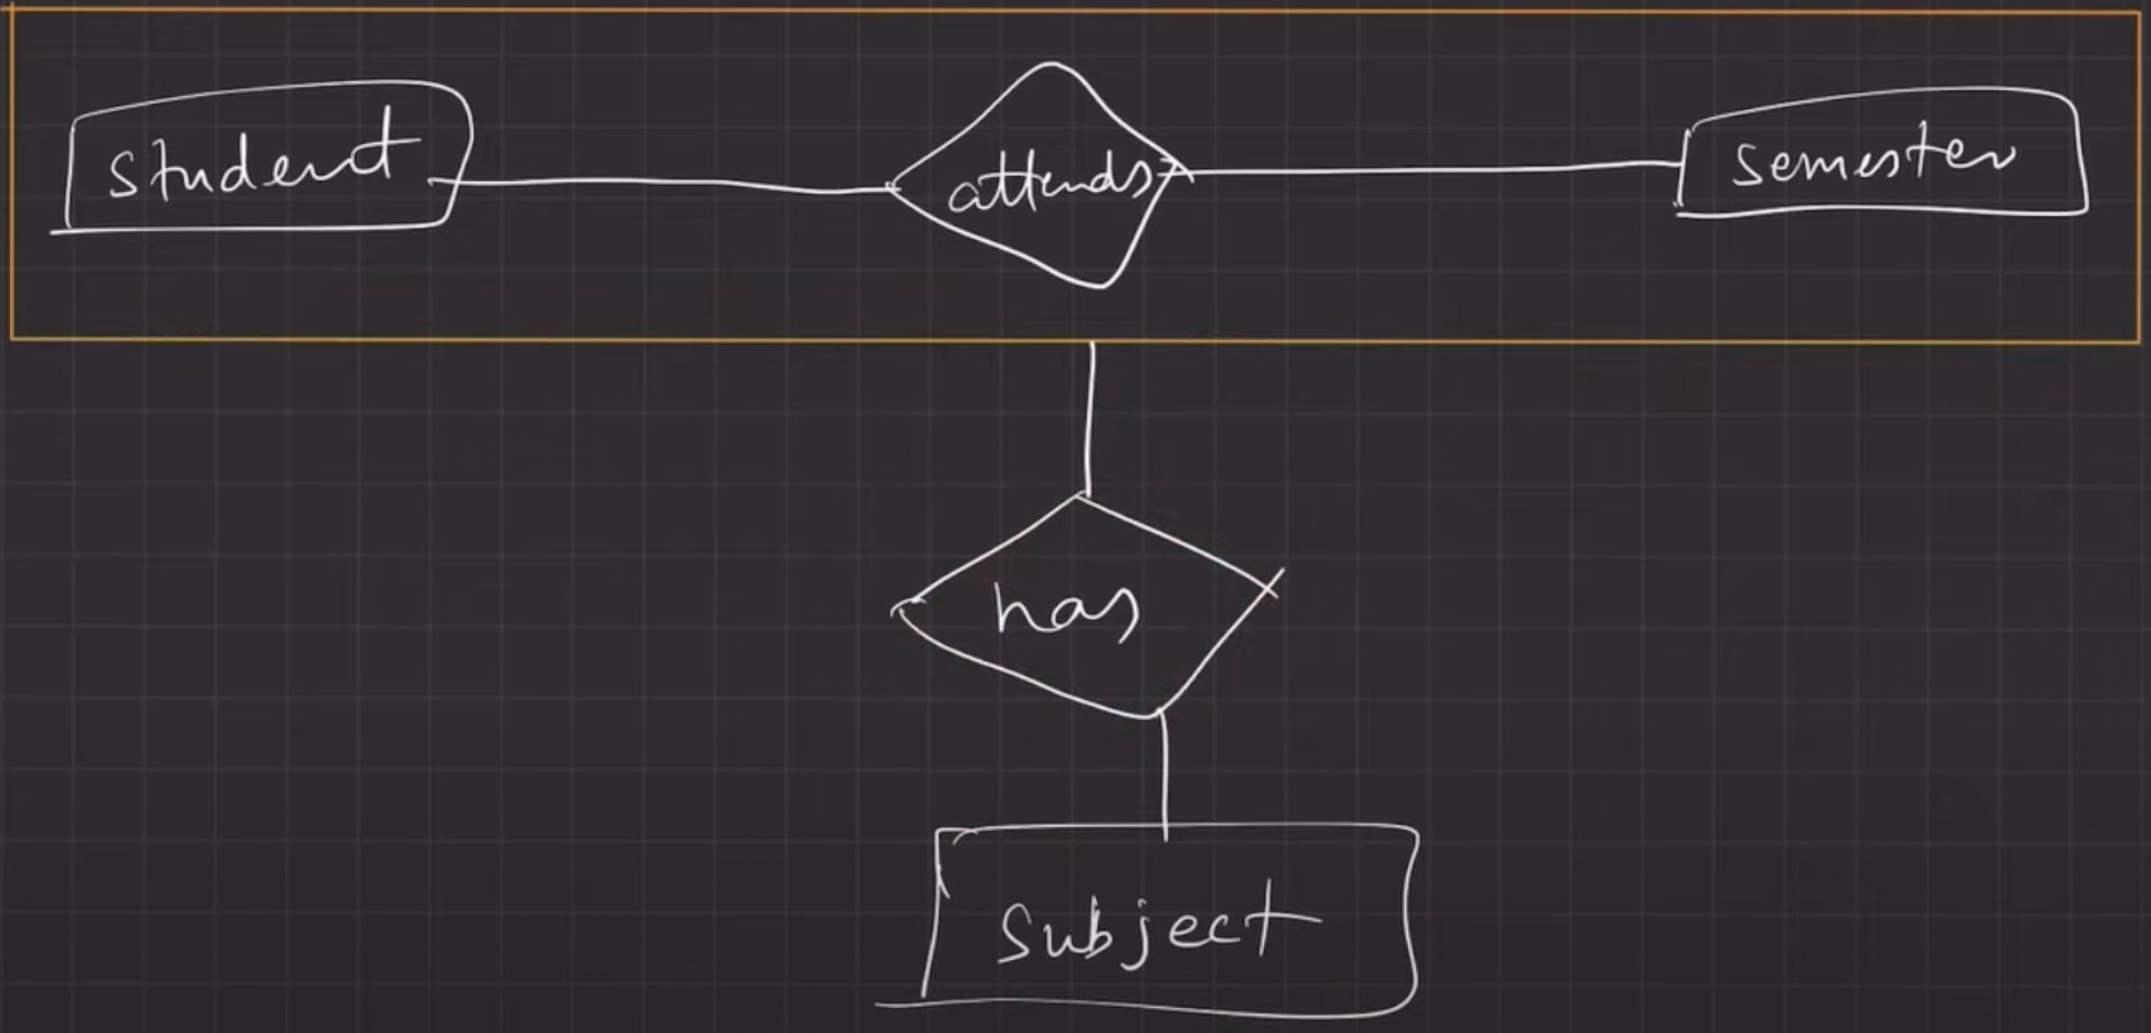 student
attends
semester
has
subject